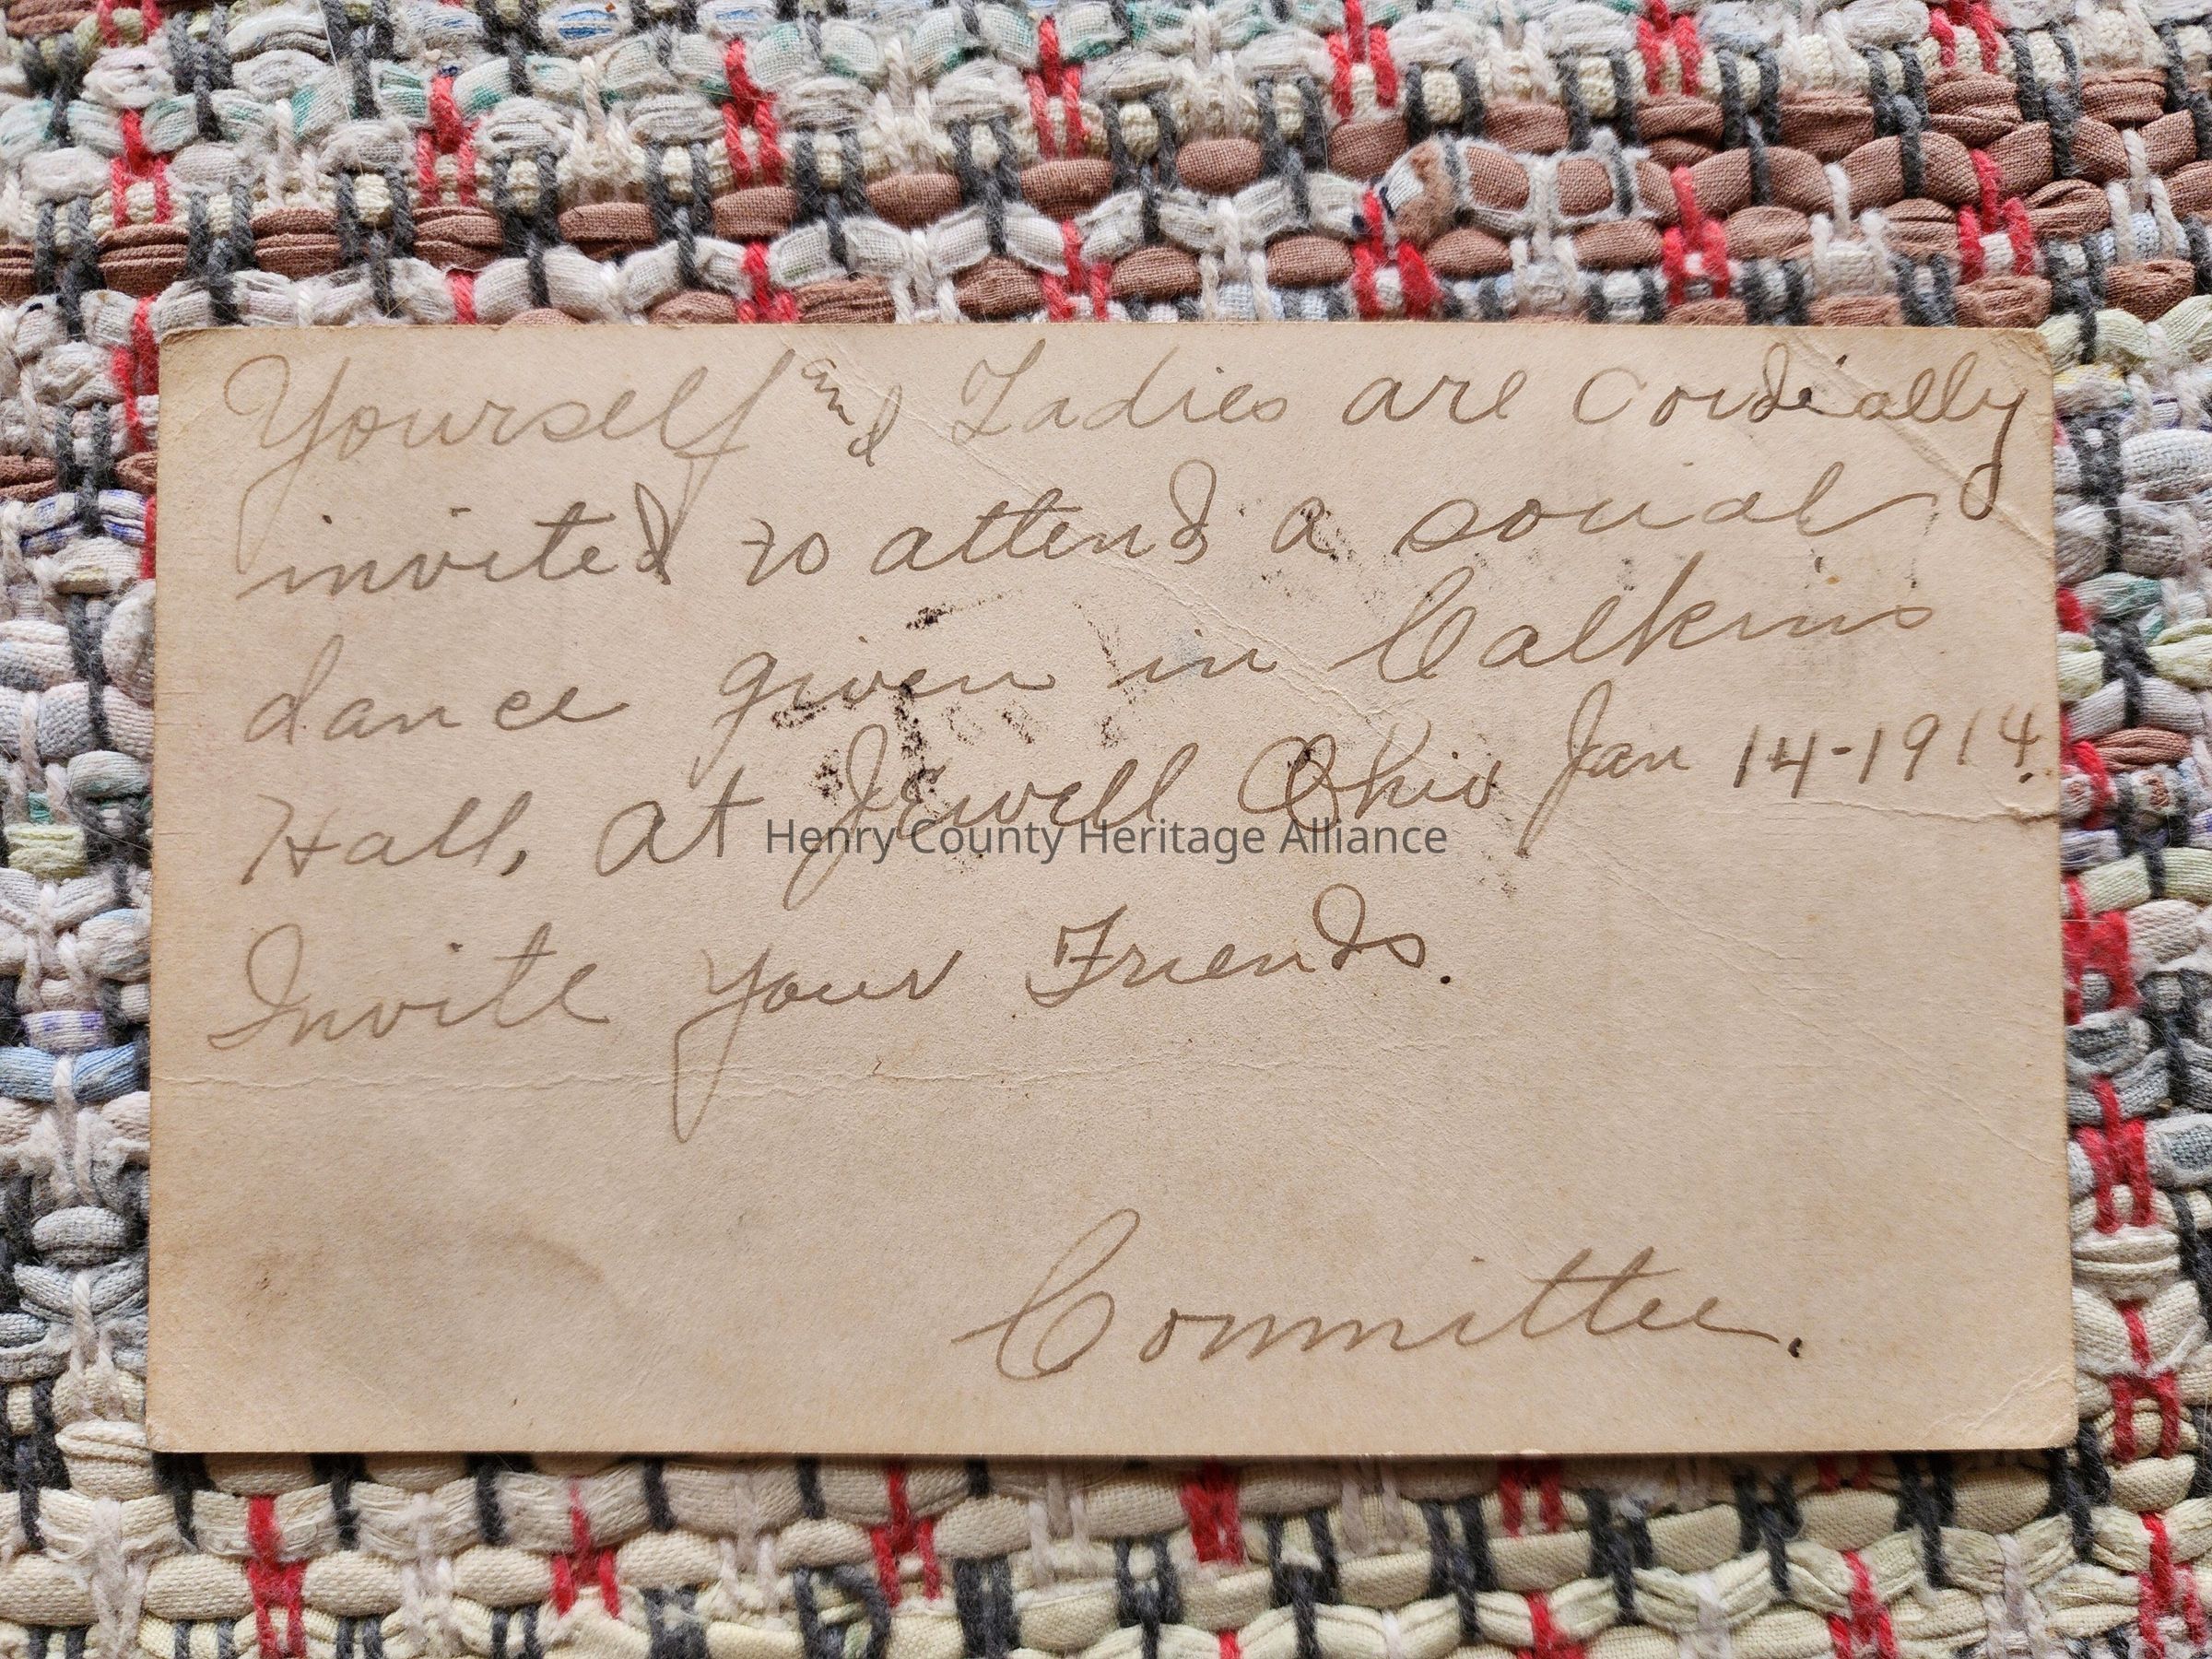 Yourself and Ladies are Cordially
invited to attend a social
dance given in Calkins
Hall, at Jewell Ohio Jan 14-1914.
Henry County Heritage Alliance
Invite Your Friends.
Committee.